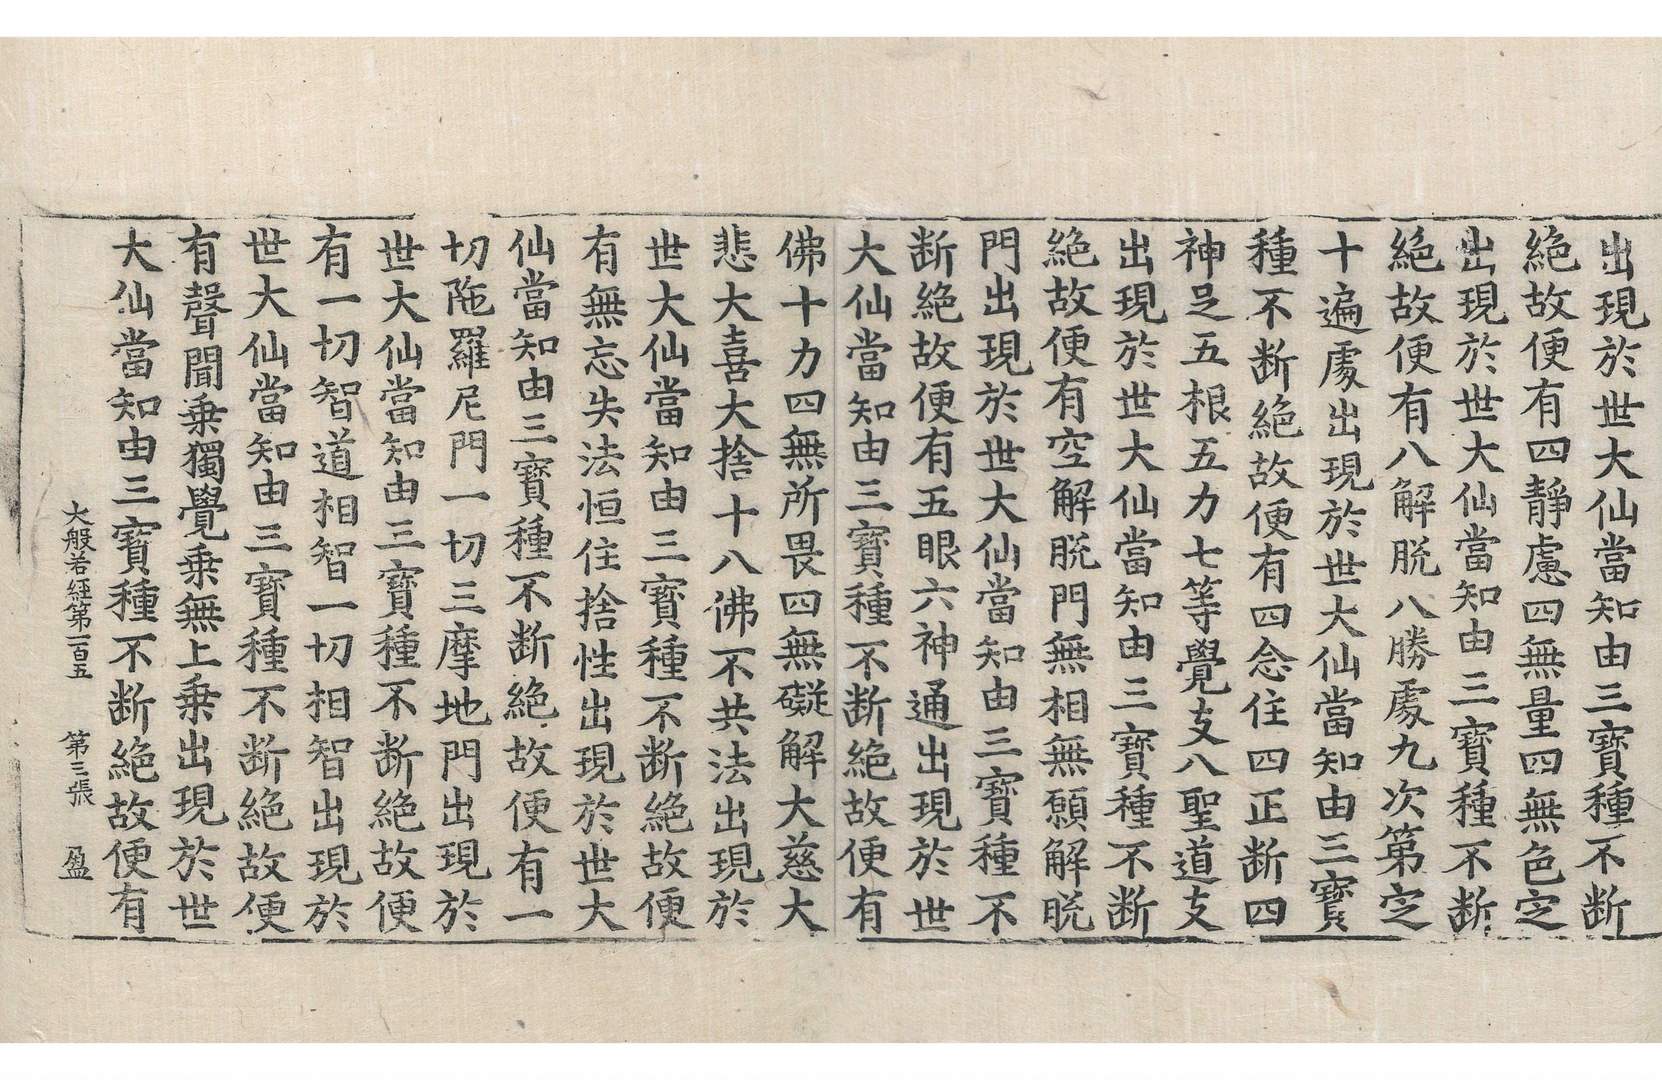 出現於世大仙當知由三寶種不断
絕故便有四靜慮四無量四無色㝎
出現於世大仙當知由三寶種不断
絕故便有八解脫八勝䖏九次第㝎
十遍䖏出現於世大仙當知由三寶
種不断絕故便有四念住四正断四
神足五根五力七等覺支八聖道支
出現於世大仙當知由三寶種不断
絕故便有空解脫門無相無願解脫
門出現於世大仙當知由三寶種不
断絕故便有五眼六神通出現於世
大仙當知由三寶種不断絕故便有
佛十力四無所畏四無礙解大慈大
悲大喜大捨十八佛不共法出現於
世大仙當知由三寶種不断絕故便
有無忘失法恒住捨性出現於世大
仙當知由三寶種不断絕故便有一
切陁羅尼門一切三摩地門出現於
世大仙當知由三寶種不断絕故便
有一切智道相智一切相智出現於
世大仙當知由三寶種不断絕故便
有聲聞乗獨覺乗無上乗出現於世
大仙當知由三寶種不断絕故便有
大般若經第一百五 第三張 盈